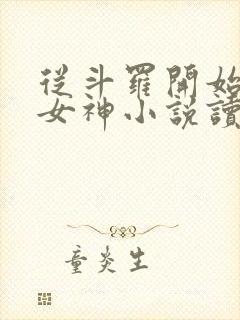 從斗羅開始
女神小說讀
童炎生